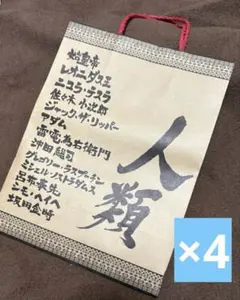 始皇帝
レオニダス王
ニコラ・テスラ
佐々木小次郎
ジャック・ザ・リッパー
アダム
雷電為右衛門
沖田総司
グレゴリー・ラスプーチン
ミシェル・ノストラダムス
呂布奉先
シモ・ヘイヘ
坂田金時
人類
×4